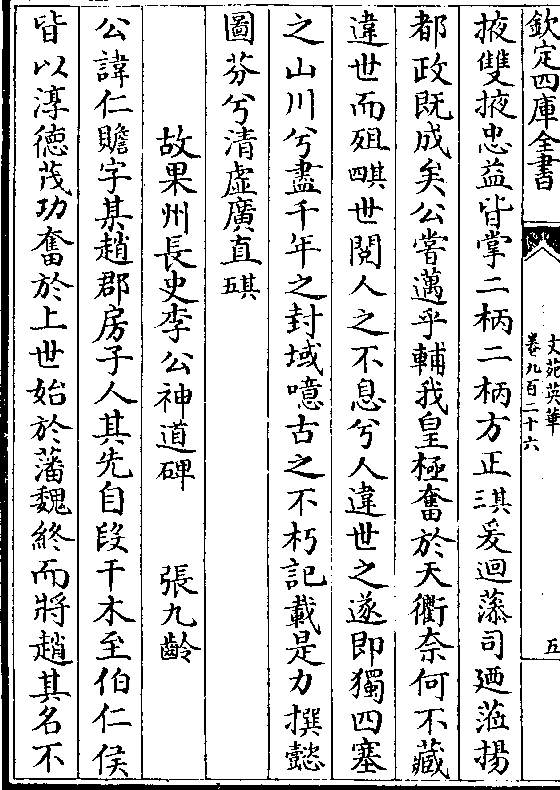 欽定四庫全書
文苑英華
卷九百二十六
五
掖雙掖忠益皆掌二柄二柄方正其三爰迴藩司廼蒞揚
都政既成矣公嘗邁乎輔我皇極奮於天衢奈何不藏
違世而殂其四世閱人之不息兮人違世之遂即獨四塞
之山川兮盡千年之封域噫古之不朽記載是力撰懿
圖芬兮清虛廣直其五
故果州長史李公神道碑 張九齡
公諱仁瞻字某趙郡房子人其先自段干木至伯仁侯
皆以淳德茂功奮於上世始於藩魏終而將趙其名不